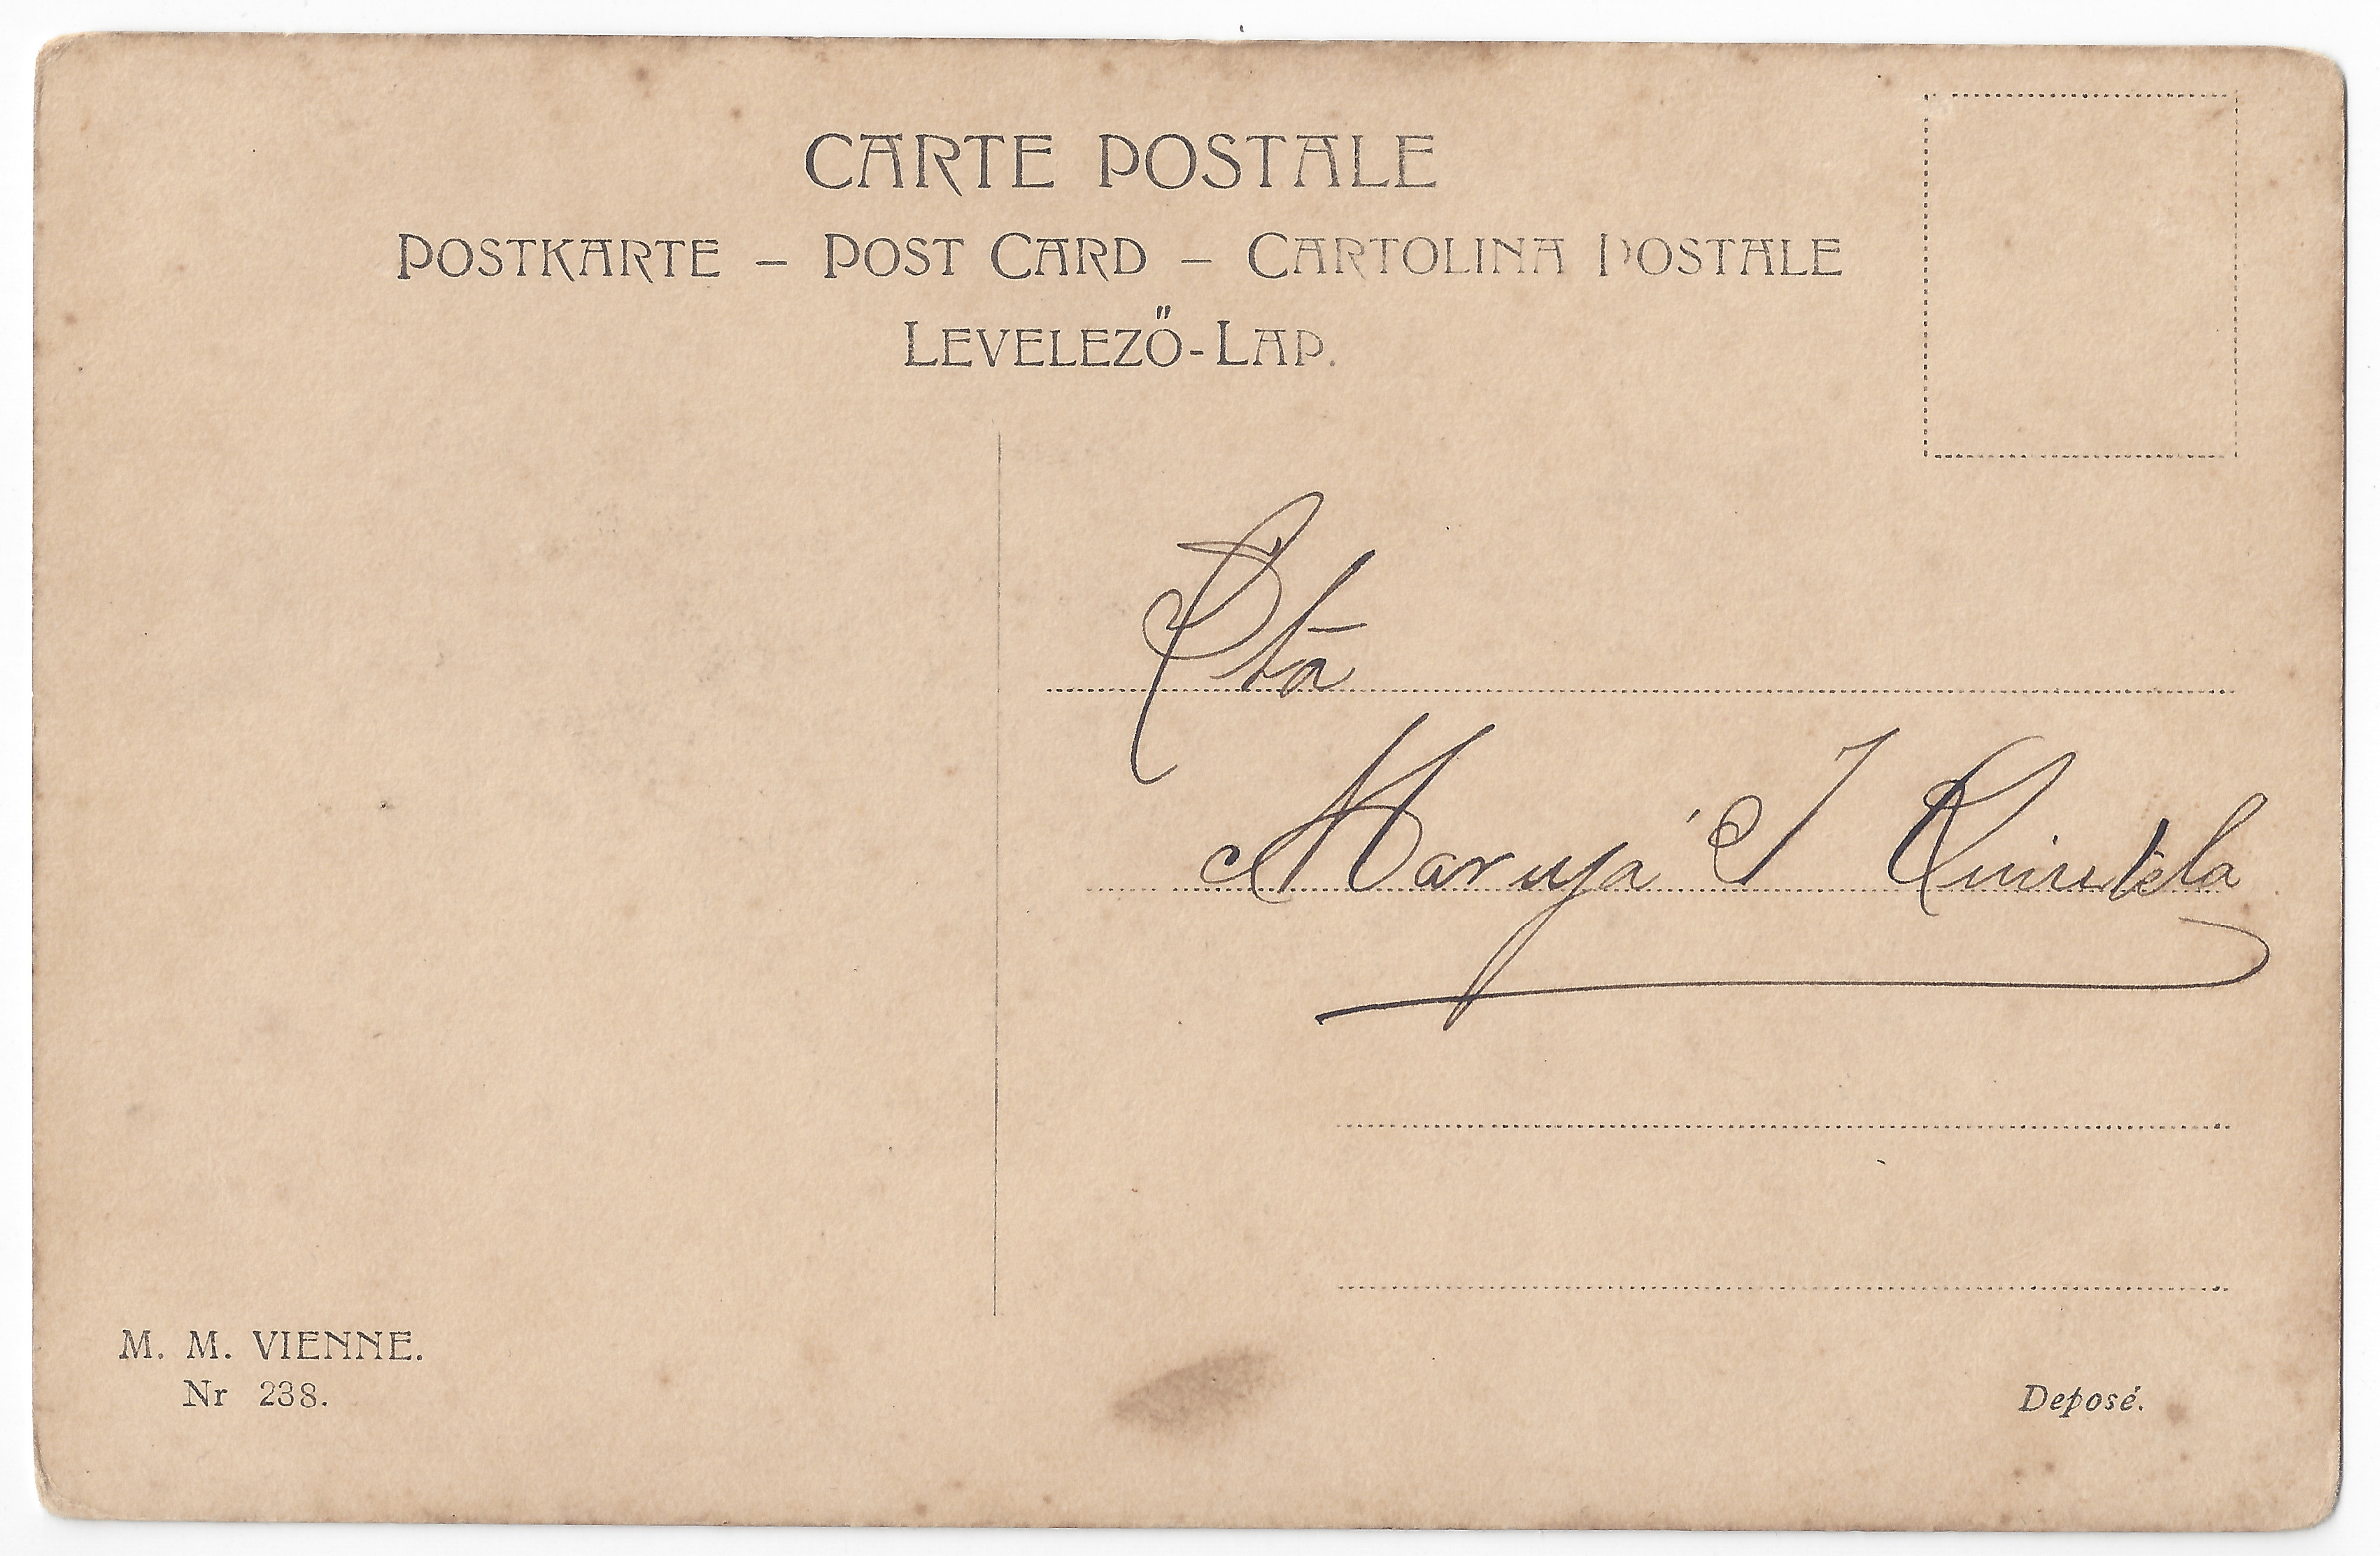 CARTE POSTALE
POSTKARTE – POST CARD – CARTOLINA POSTALE
LEVELEZŐ-LAP.
Sta
Maruja I Quintela
M. M. VIENNE.
Nr 238.
Deposé.